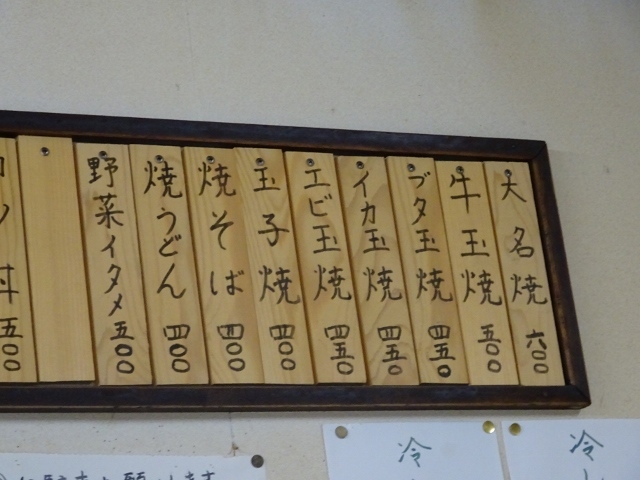 大名焼 六〇〇
牛玉焼 五〇〇
ブタ玉焼 四五〇
イカ玉焼 四五〇
エビ玉焼 四五〇
玉子焼 四〇〇
焼そば 四〇〇
焼うどん 四〇〇
野菜イタメ 五〇〇
丼 五〇〇
冷
冷